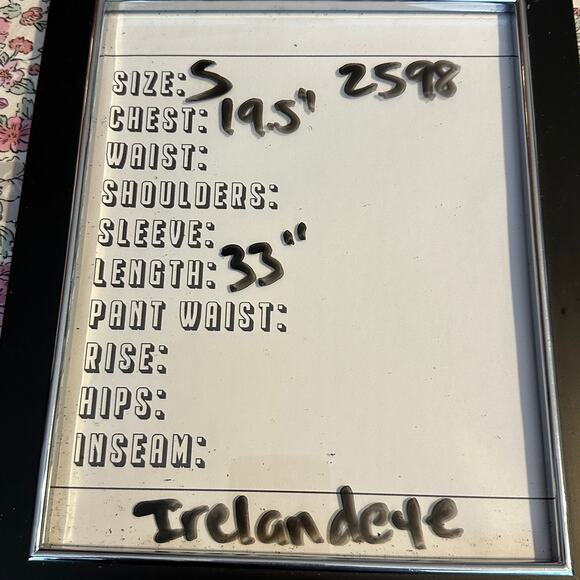 SIZE: S 2598
CHEST: 19.5"
WAIST:
SHOULDERS:
SLEEVE:
LENGTH: 33"
PANT WAIST:
RISE:
HIPS:
INSEAM:
Irelandeye